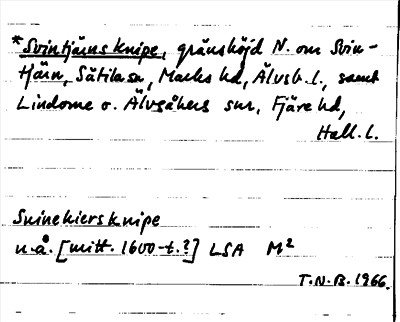 *Svintjärnsknipe, gränshöjd N. om Svin-
tjärn, Sätila sn, Marks hd, Älvsb. l., samt
Lindome o. Älvsåkers snr, Fjäre hd,
Hall. l.
Suinekiersknipe
u.å. [mitt. 1600-t.?] LSA M²
T.N.B. 1966.